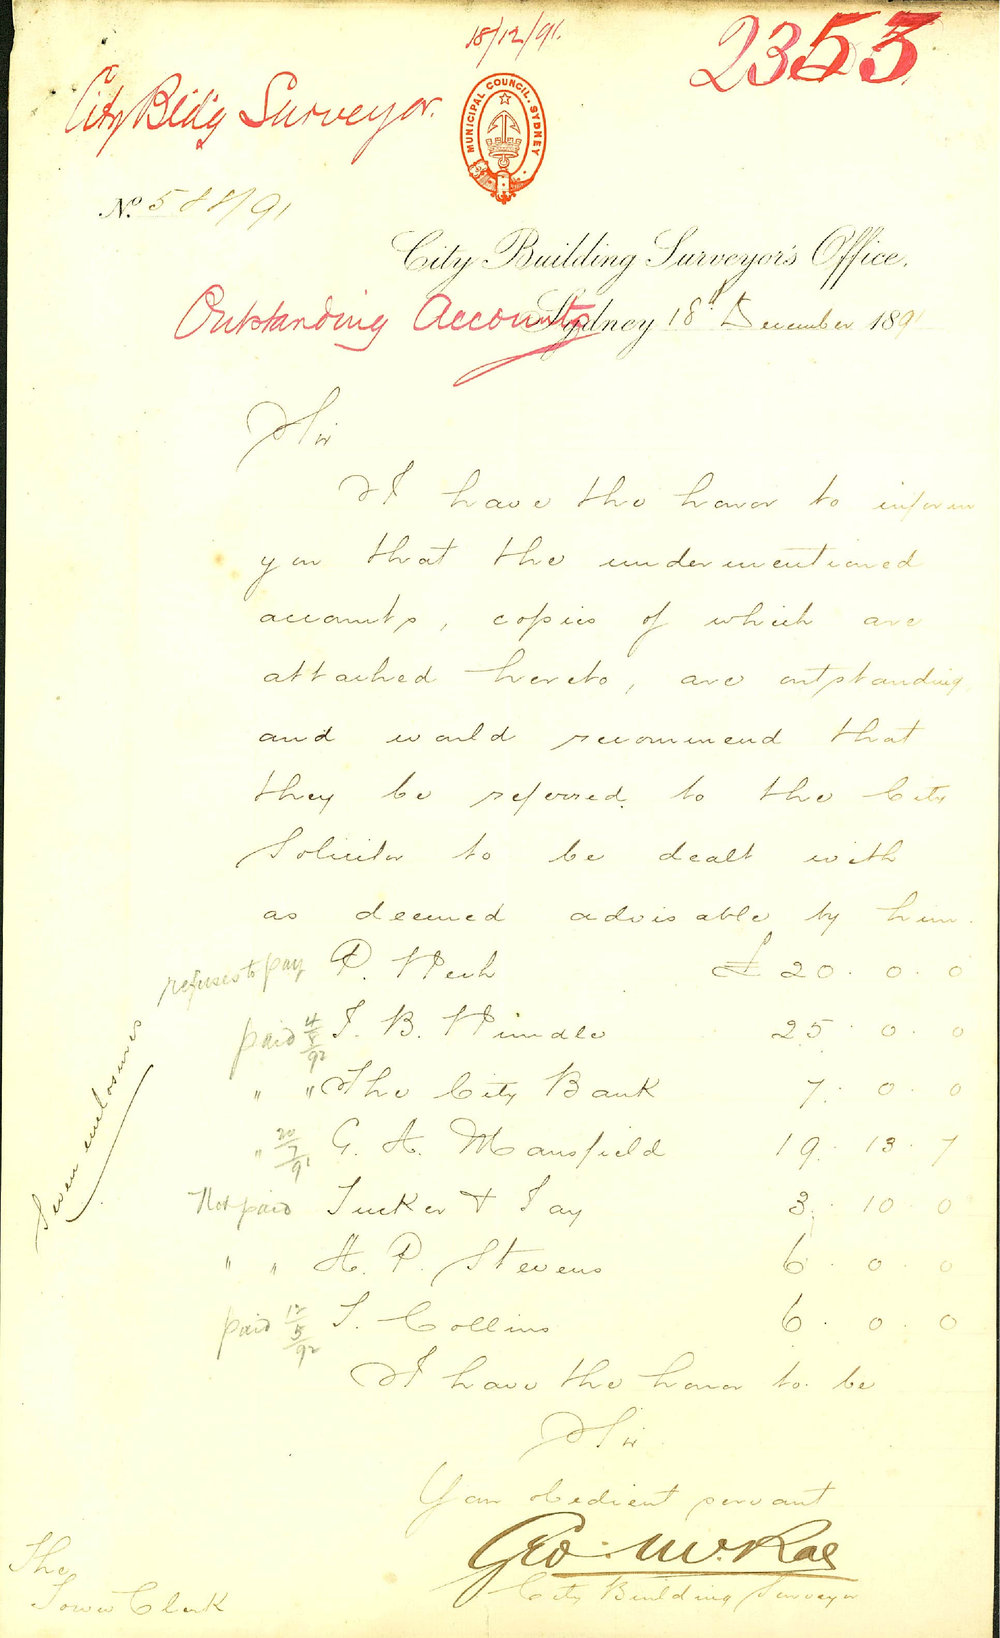 18/12/91.
2353
City Bldg Surveyor.
MUNICIPAL COUNCIL. SYDNEY
No. 588/91
City Building Surveyor's Office.
Outstanding Accounts
Sydney 18th December 1891
Sir
I have the honor to inform
you that the undermentioned
accounts, copies of which are
attached hereto, are outstanding
and would recommend that
they be referred to the City
Solicitor to be dealt with
as deemed advisable by him.
refuses to pay P. £ 20. 0. 0
paid 4/5/92 J. B. 25. 0. 0
" " The City Bank 7. 0. 0
" 20/7/91 G. A. Mansfield 19. 13. 7
Not paid Tucker & Jay 3. 10. 0
" " H. P. Stevens 6. 0. 0
paid 12/5/92 T. Collins 6. 0. 0
Seven enclosures
I have the honor to be
Sir
Your obedient servant
Geo. McRae
City Building Surveyor
The
Town Clerk